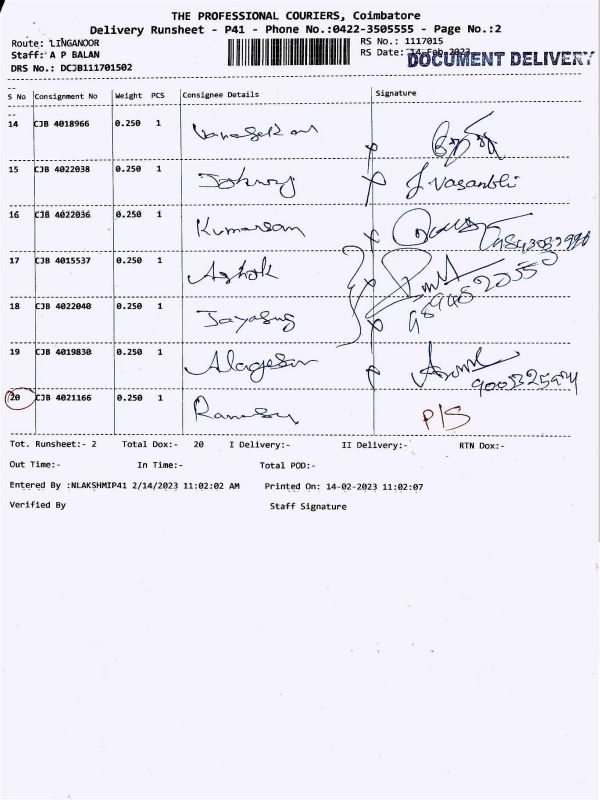 THE PROFESSIONAL COURIERS, Coimbatore
Delivery Runsheet - P41 - Phone No.:0422-3505555 - Page No.:2
Route: LINGANOOR
RS No.: 1117015
Staff: A P BALAN
RS Date: 14-Feb-2023
DOCUMENT DELIVERY
DRS No.: DCJB111701502
S No Consignment No Weight PCS Consignee Details Signature
14 CJB 4018966 0.250 1
15 CJB 4022038 0.250 1 Johnny J. Vasanthi
16 CJB 4022036 0.250 1 Kumaresan
17 CJB 4015537 0.250 1 Ashok
18 CJB 4022040 0.250 1
19 CJB 4019830 0.250 1 Alagesan
20 CJB 4021166 0.250 1 P/S
Tot. Runsheet:- 2 Total Dox:- 20 I Delivery:- II Delivery:- RTN Dox:-
Out Time:- In Time:- Total POD:-
Entered By :NLAKSHMIP41 2/14/2023 11:02:02 AM Printed On: 14-02-2023 11:02:07
Verified By Staff Signature